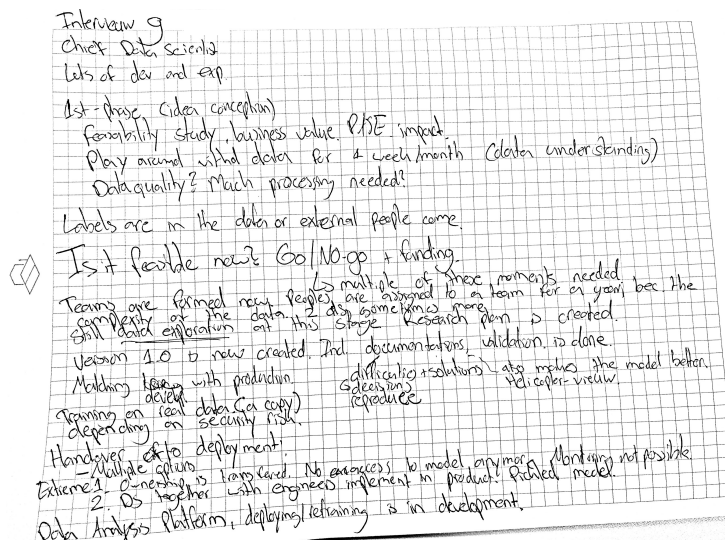 Interview 9
Chief Data Scientist
Lots of dev and exp.
1st-phase (idea conception)
Feasability study, business value. impact.
Play around withd data for 1 week/month (data understanding)
Data quality? Mach processing needed?
Labels are in the data or external people come.
Is it feasilde now? Go/No-go + funding.
↳ multiple of these moments needed
Teams are formed now. People are assigned to a team for a year, bec. the
complexity of the data. 2 also sometimes more.
Still data exploration at this stage. Research plan is created.
Version 1.0 is now created. Incl. documentations, validation, is done.
Matching with production. difficulties + solutions also makes the model better.
develop. decisions Helicopter-vieuw.
reproduce
Training on real data (a copy)
depending on security risk.
Handover to deployment:
- Multiple options
Extreme: 1 Ownership is transfered. No access to model anymore. Monitoring not possible.
2. DS together with engineers implement in product. Pickled model.
Data Analysis Platform, deploying/retraining is in development.